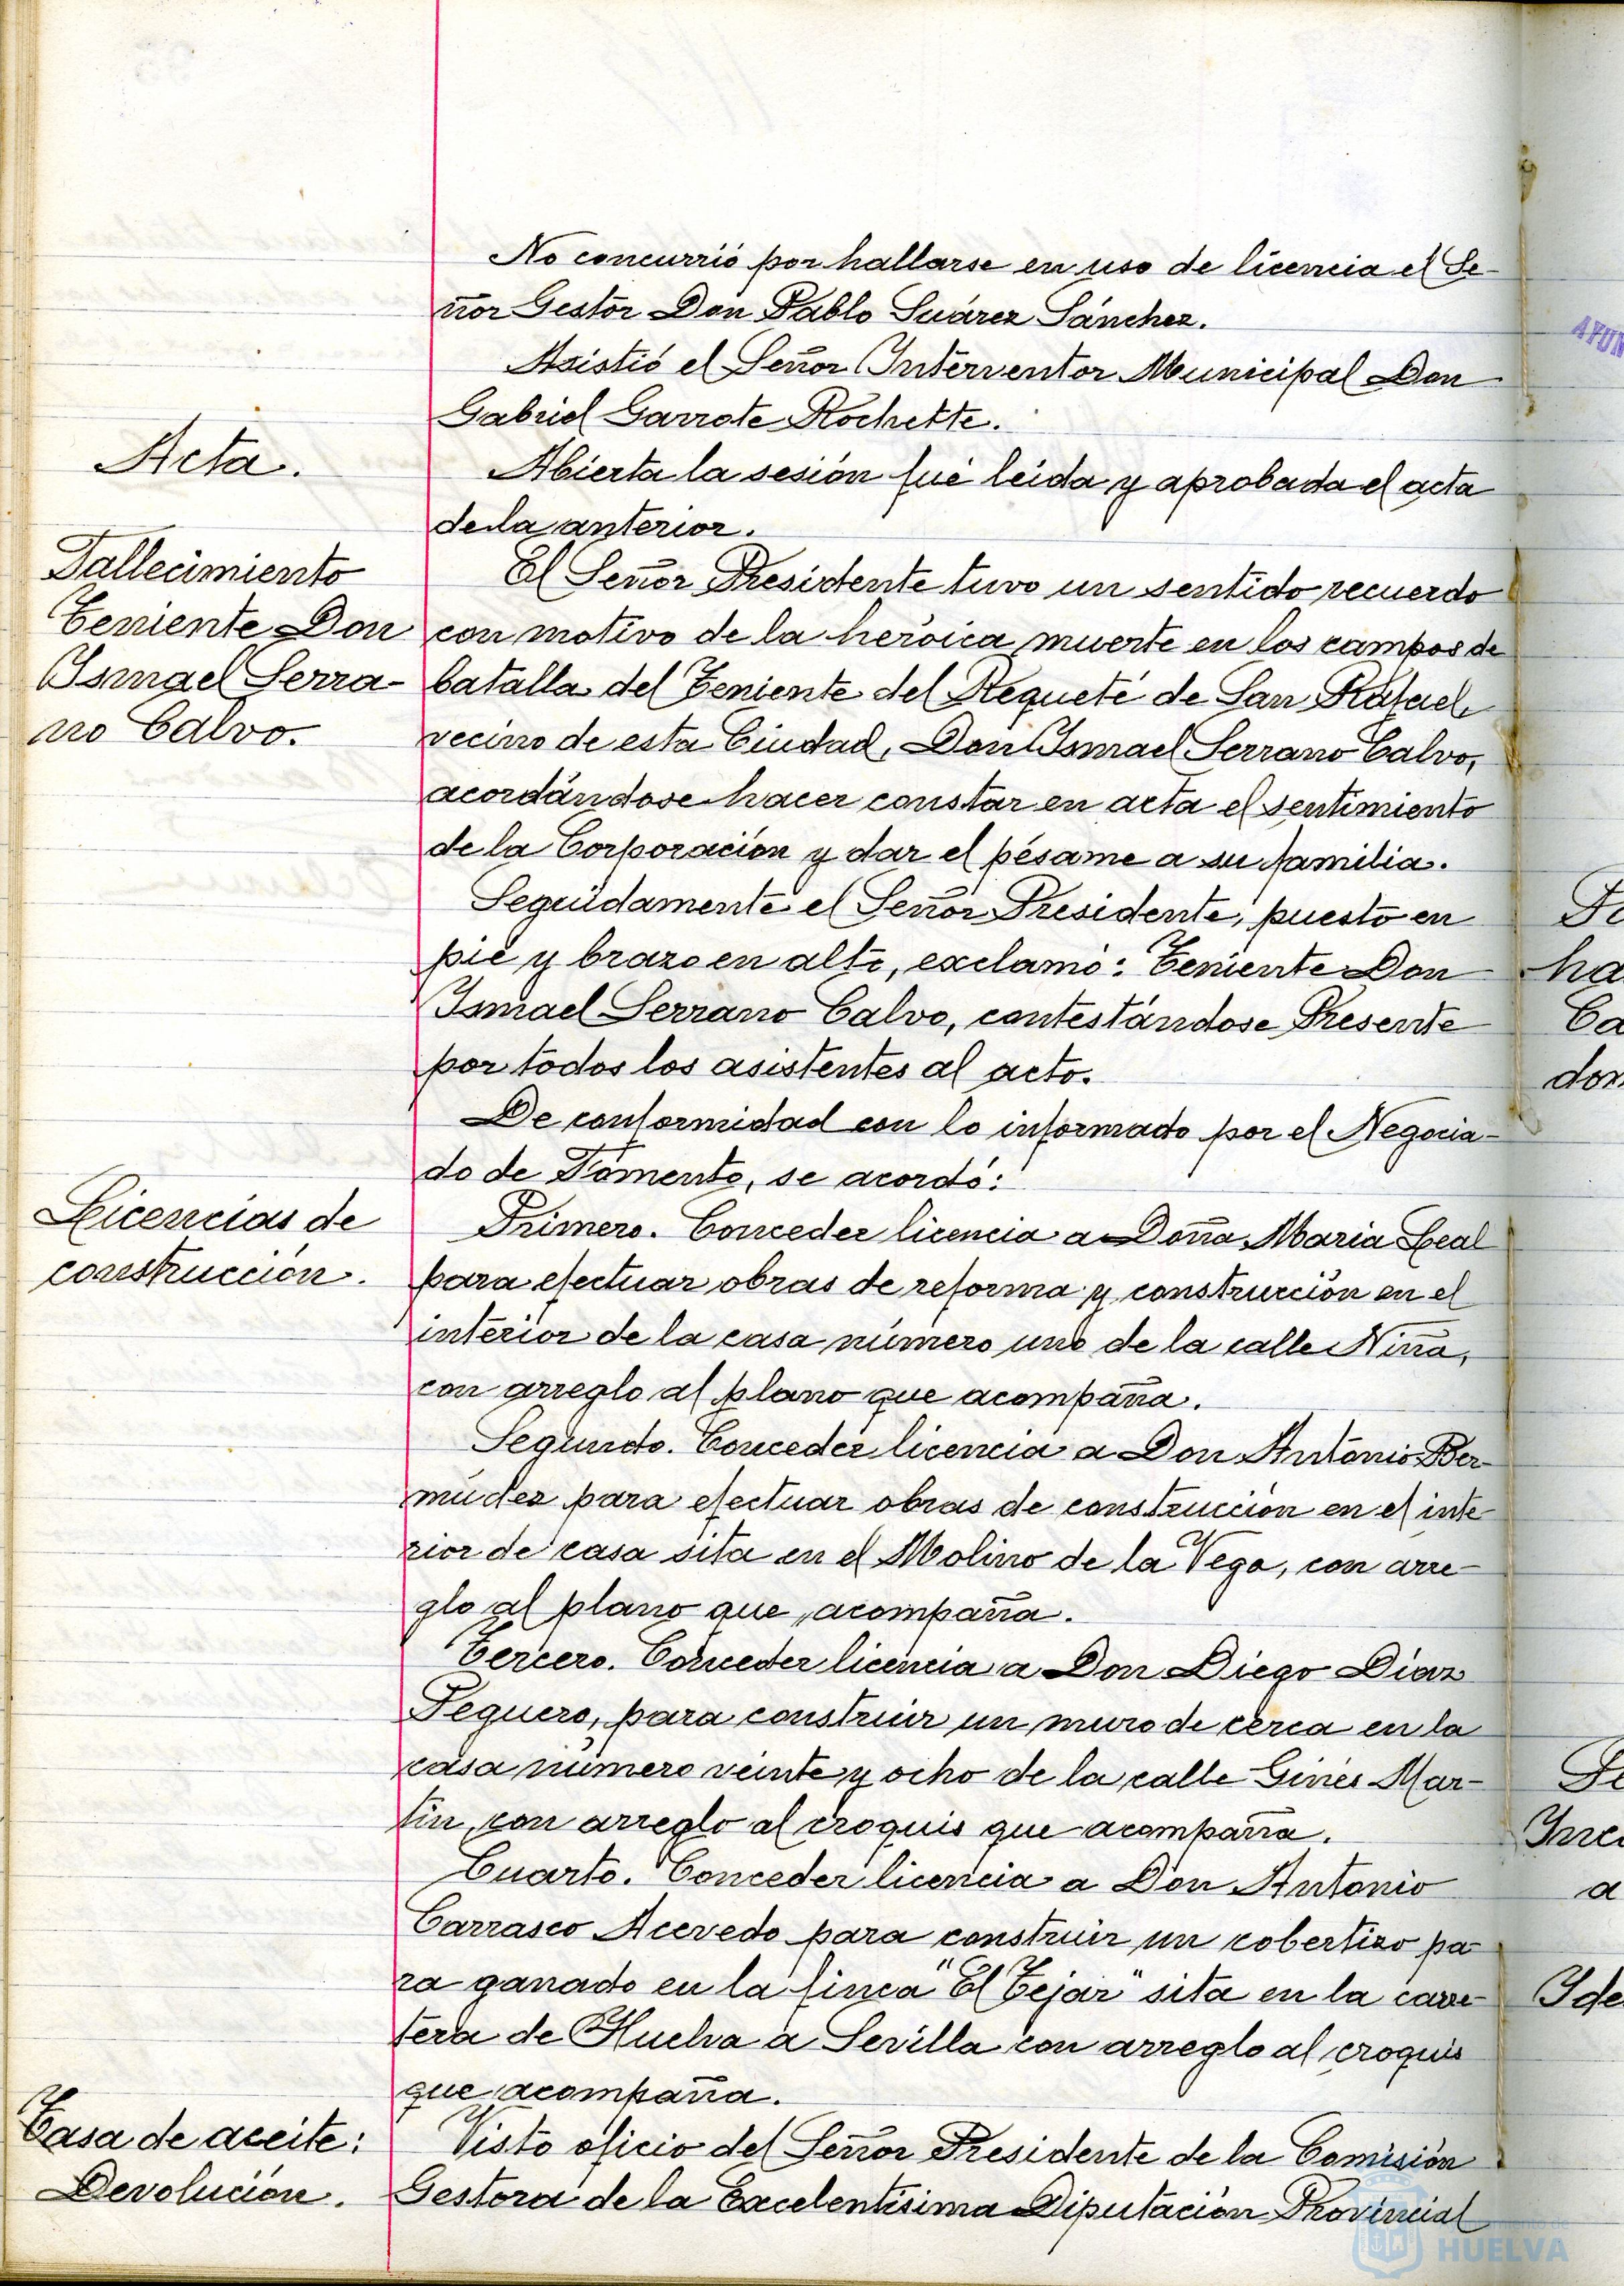 No concurrió por hallarse en uso de licencia el Se-
ñor Gestor Don Pablo Suárez Sánchez.
Asistió el Señor Interventor Municipal Don
Gabriel Garrote Rochette.
Acta.
Abierta la sesión fué leida y aprobada el acta
de la anterior.
Fallecimiento
Teniente Don
Ismael Serra-
no Calvo.
El Señor Presidente tuvo un sentido recuerdo
con motivo de la heróica muerte en los campos de
batalla del Teniente del Requeté de San Rafael,
vecino de esta Ciudad, Don Ismael Serrano Calvo,
acordándose hacer constar en acta el sentimiento
de la Corporación y dar el pésame a su familia.
Seguidamente el Señor Presidente, puesto en
pié y brazo en alto, exclamó: Teniente Don
Ismael Serrano Calvo, contestándose Presente
por todos los asistentes al acto.
De conformidad con lo informado por el Negocia-
do de Fomento, se acordó:
Licencias de
construcción.
Primero. Conceder licencia a Doña Maria Leal
para efectuar obras de reforma y construcción en el
interior de la casa número uno de la calle Niña,
con arreglo al plano que acompaña.
Segundo. Conceder licencia a Don Antonio Ber-
mudez para efectuar obras de construcción en el inte
rior de casa sita en el Molino de la Vega, con arre-
glo al plano que acompaña.
Tercero. Conceder licencia a Don Diego Diaz
Peguero, para construir un muro de cerca en la
casa número veinte y ocho de la calle Ginés Mar-
tin, con arreglo al croquis que acompaña.
Cuarto. Conceder licencia a Don Antonio
Carrasco Acevedo para construir un cobertizo pa
ra ganado en la finca "El Tejar" sita en la carre-
tera de Huelva a Sevilla con arreglo al croquis
que acompaña.
Tasa de aceite:
Devolución.
Visto oficio del Señor Presidente de la Comisión
Gestora de la Excelentísima Diputación Provincial
HUELVA